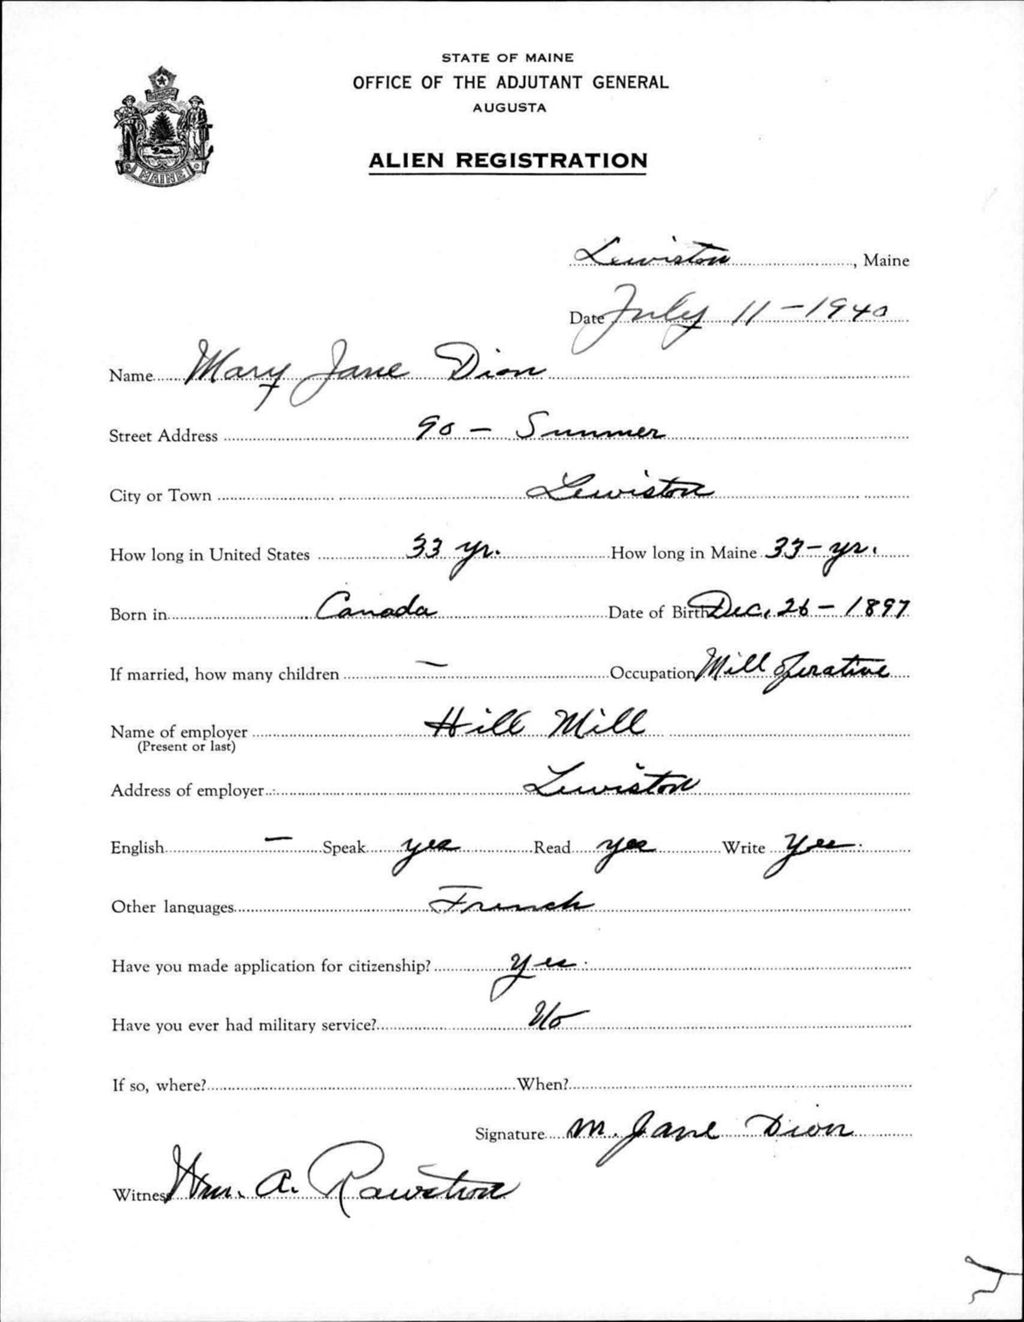 STATE OF MAINE
OFFICE OF THE ADJUTANT GENERAL
AUGUSTA
MAINE
ALIEN REGISTRATION
Lewiston, Maine
Date July 11-1940
Name Mary Jane Dion
Street Address 90 - Summer
City or Town Lewiston
How long in United States 33 yr. How long in Maine 33-yr.
Born in Canada Date of Birth Dec. 26-1897
If married, how many children — Occupation Mill operative
Name of employer Hill Mill
(Present or last)
Address of employer Lewiston
English — Speak yes Read yes Write Yes.
Other languages French
Have you made application for citizenship? Yes.
Have you ever had military service? No
If so, where? When?
Signature M. Jane Dion
Witness Wm. A. Rawstron